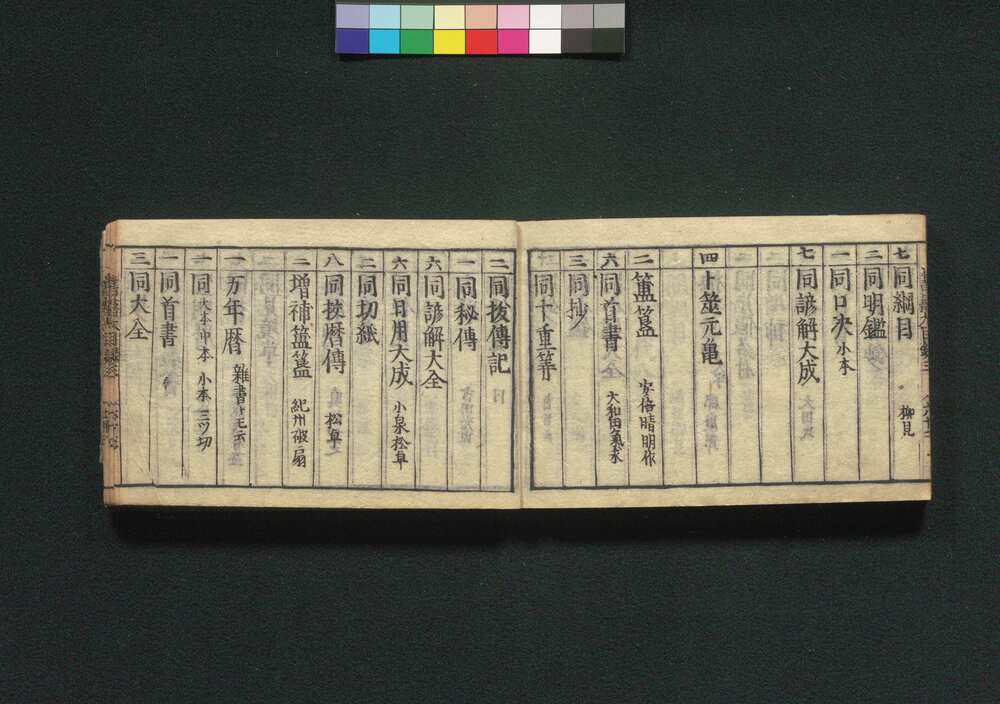 七 同綱目 柳見
二 同明鑑
一 同口次 小本
七 同諺解大成
四 卜筮元亀
二 簠簋 安倍晴明作
六 同首書 大和田氣求
三 同抄
同十重
二 同拔傳記
一 同秘傳
六 同諺解大全
六 同日用大成 小泉松卓
二 同切紙
八 同挍暦傳 松卓
二 増補簠簋 紀州破扇
一 万年暦 雜書
一 同 大本 中本 小本 三ツ切
一 同首書
三 同大全